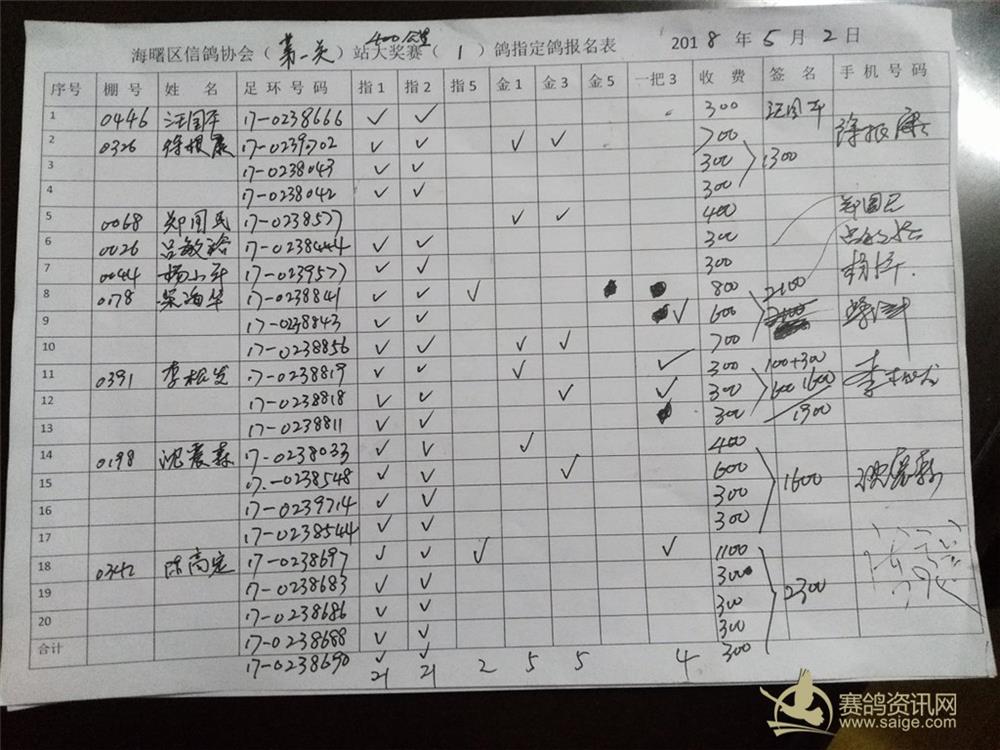 400公里
海曙区信鸽协会（第一关）站大奖赛（1）鸽指定鸽报名表 2018年5月2日
序号 棚号 姓名 足环号码 指1 指2 指5 金1 金3 金5 一把3 收费 签名 手机号码
1 0446 汪国平 17-0238666 ✓ ✓ 300 汪国平
2 0326 徐报康 17-0239702 ✓ ✓ ✓ ✓ 700 徐报康
3 17-0238043 ✓ ✓ 300 1300
4 17-0238042 ✓ ✓ 300
5 0068 郑国民 17-0238577 ✓ ✓ 400 郑国民
6 0026 吕敏裕 17-0238444 ✓ ✓ 300
7 0044 杨小平 17-0239577 ✓ ✓ 300
8 0178 梁海华 17-0238841 ✓ ✓ ✓ 800 2100
9 17-0238843 ✓ ✓ ✓ 600
10 17-0238856 ✓ ✓ ✓ ✓ 700
11 0391 李松发 17-0238819 ✓ ✓ ✓ ✓ 300 100+300
12 17-0238818 ✓ ✓ ✓ ✓ 300 600 1600
13 17-0238811 ✓ ✓ 300 1900
14 0198 沈震森 17-0238033 ✓ ✓ ✓ 400
15 17-0238548 ✓ ✓ ✓ 600 1600
16 17-0239714 ✓ ✓ 300
17 17-0238544 ✓ ✓ 300
18 0342 陈高定 17-0238697 ✓ ✓ ✓ ✓ 1100
19 17-0238683 ✓ ✓ 300 2300
20 17-0238686 ✓ ✓ 300
合计 17-0238688 ✓ ✓ 300
17-0238690 ✓ ✓ 300
21 21 2 5 5 4
赛鸽资讯网
www.saige.com